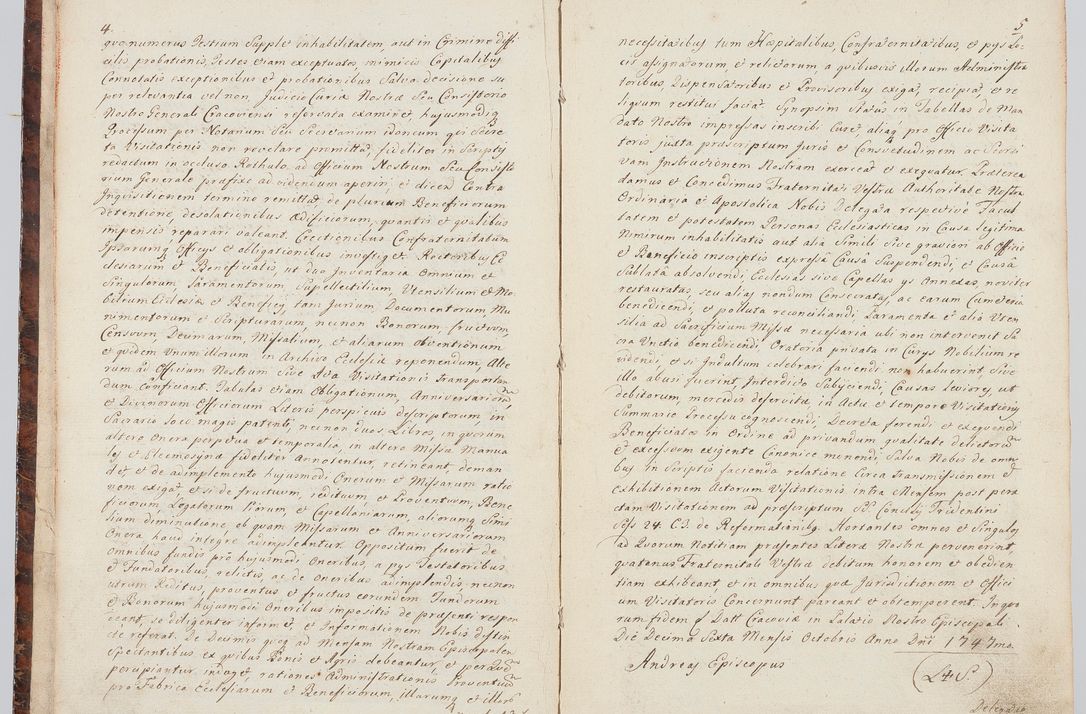 4.
quo numerus Testium Supplet inhabilitatem, aut in Crimine diffi
cilis probationis, Testes etiam exceptuatos, inimicis Capitalibus
Connotatis exceptionibus et probationibus Salva decisione su
per relevantia vel non, Judicio Curiæ Nostræ Seu Consistorio
Nostro Generali Cracoviensi reservata examinet, hujusmodiq
Processum per Notarium Seu Secretarium idoneum qui Secre
ta Visitationis non revelare promittat, fideliter in Scriptis
redactum in occluso Rothulo ad Officium Nostrum Seu Consisto
rium Generale præfixo ad videndum aperiri, et dicend Contra
Inquisitionem termino remittat, de plurium Beneficiorum
detentione, desolationibus Ædificiorum, quantis et qualibus
impensis reparari valeant, Erectionibus Confraternitatum
Ipsarumq Officiis et obligationibus investiget. Rectoribus Ec
clesiarum et Beneficialis, ut duo Inventaria Omnium et
Singulorum, Saramentorum, Supellectilium, Utensilium et Mo
bilium Ecclesiæ et Beneficij, tam Jurium, Documentorum, Mu
nimentorum et Scripturarum, necnon Bonorum, fructuum,
Censuum, Decimarum, Missalium, et aliarum obventionum
et quidem Unum illorum, in Archivo Ecclesiæ reponendum, Alte
rum ad Officium Nostrum Sive Acta Visitationis transportan
dum Conficiant. Tabulas etiam Obligationum, Anniversariorum,
et Divinorum Officiorum Literis perspicuis descriptorum, in
Sacrario loco magis patenti, necnon duos Libros, in quorum
altero Onera perpetua et temporalia, in altero Missæ Manua
les et Eleemosynæ fideliter Annotentur, retineant, deman
det et de adimplemento hujusmodi Onerum et Missarum ratio
nem exigat, et si de fructuum, redituum et Proventuum, Bene
ficiorum, Legatorum Piorum, et Capellaniarum, aliorumq Simi
lium diminutione, ob quam Missarum et Anniversariorum
Onera haud integre adimpleantur. Oppositum fuerit de
omnibus fundis pro hujusmodi Oneribus, a piis Testatoribus
et Fundatoribus, relictis, ac de oneribus adimplendis, necnon
utrum Reditus, proventus et fructus eorundem Fundorum
et Bonorum hujusmodi Oneribus impositis de præsenti respon
deant, se diligenter informet, et Informationem Nobis distin
cte referat. De Decimis quoq ad Mensam Nostram Episcopalem
Spectantibus ex quibus Bonis et Agris debeantur, et per Quos
percipiantur, indaget, rationes Administrationis Proventuum
pro Fabrica Ecclesiarum et Beneficiorum, illarumq et illorum
5
necessitatibus tum Hospitalibus, Confraternitatibus, et piis Lo
cis assignatorum, et relictorum, a quibusvis illorum Administra
toribus, Dispensatoribus et Provisoribus exigat, recipiat, et re
liquum restitui faciat. Synopsim Status in Tabellas de Man
dato Nostro impressas inscribi Curet, aliaq pro Officio Visita
toris, juxta præscriptum Juris et Consvetudinem ac Specti
vam Instructionem Nostram exerceat et exequatur. Præterea
damus et Concedimus Fraternitati Vestræ Authoritate Nostra
Ordinaria et Apostolica Nobis Delegata respetivè Facul
tatem et potestatem Personas Ecclesiasticas in Causa legitima
Nimirum inhabilitatis aut alia Simili sive graviori ab Officio
et Beneficio inscriptis expressa Causa Suspendendi, et Causa
Sublatâ absolvendi, Ecclesias sive Capellas iis Annexas, noviter
restauratas, seu alias nondum Consecratas, ac earum Cæmeteria
benedicendi, et polluta reconciliandi Paramenta et alia Uten
silia ad Sacrificium Missæ necessaria ubi non intervenit Sa
cra Unctio benedicendi, Oratoria privata in Curijs Nobilium re
videndi, et si Indultum celebrari faciendi non habuerint, Sive
illo abusi fuerint, Interdicto Subijciendi, Causas leviores, ut
debitorum, mercedis deservitæ, in Actu et tempore Visitationis
Summario Processu cognoscendi, Decreta ferendi et exequendi
Beneficiatos in Ordine ad privandum qualitate delictorum
et excessuum exigente Canonice monendi Salva Nobis de om
bus in Scriptis facienda relatione Circa transmissionem et
exhibitionem Actorum Visitationis intra Mensem post pera
ctam Visitationem ad præscriptum SS. Concilij Tridentini
Sess 24. C3. de Reformationibq. Hortantes omnes et Singulos
ad Quorum Notitiam præsentes Literæ Nostræ pervenerint,
quatenus Fraternitati Vestræ debitum honorem et obedien
tiam exhibeant, et in omnibus quæ Jurisditionem et Offici
um Visitatoris Concernunt pareant et obtemperent. In quo
rum fidem &c Datt Cracoviæ in Palatio Nostro Episcopali.
Die Decima Sexta Mensis Octobris Anno Dni 1747mo.
Andreas Episcopus
(L+S)